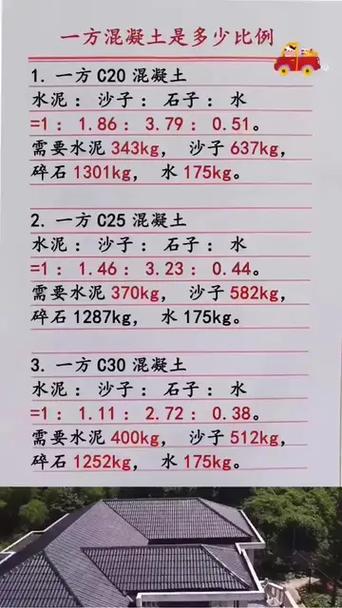 一方混凝土是多少比例
1. 一方C20混凝土
水泥：沙子：石子：水
=1：1.86：3.79：0.51。
需要水泥343kg，沙子637kg，
碎石1301kg，水175kg。
2. 一方C25混凝土
水泥：沙子：石子：水
=1：1.46：3.23：0.44。
需要水泥370kg，沙子582kg，
碎石1287kg，水175kg。
3. 一方C30混凝土
水泥：沙子：石子：水
=1：1.11：2.72：0.38。
需要水泥400kg，沙子512kg，
碎石1252kg，水175kg。